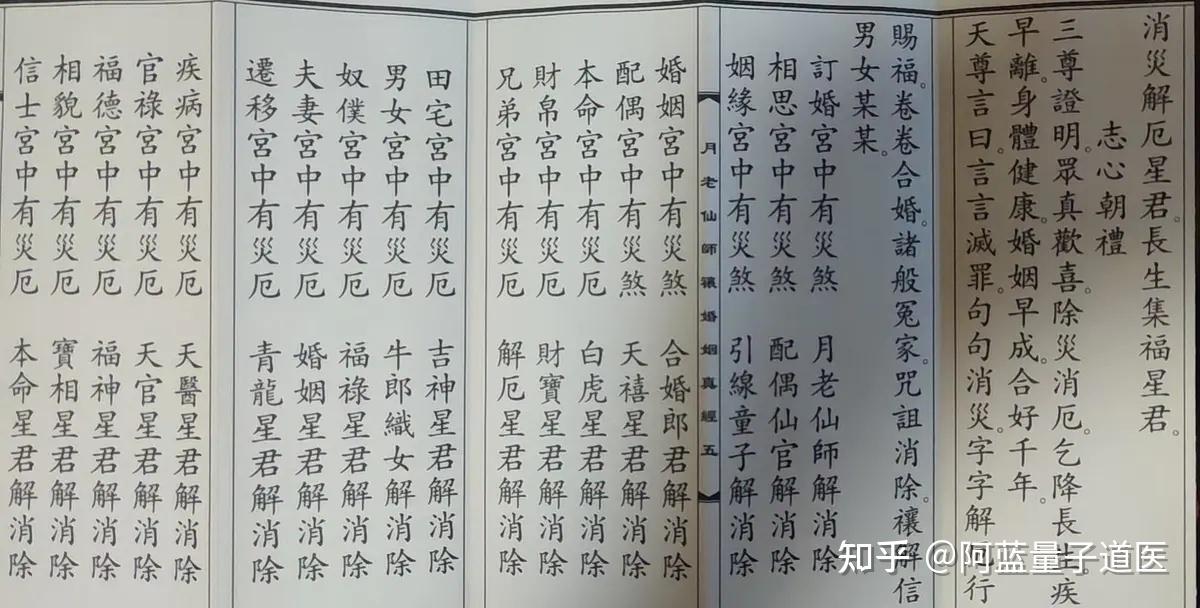 消災解厄星君。長生集福星君。
志心朝禮
三尊證明。眾真歡喜。除災消厄。乞降長生疾
早離。身體健康。婚姻早成。合好千年。
天尊言曰。言言滅罪。句句消災。字字解行
賜福。卷卷合婚。諸般冤家。咒詛消除。禳解信
男女某某。
訂婚宮中有災煞 月老仙師解消除
相思宮中有災煞 配偶仙官解消除
姻緣宮中有災煞 引線童子解消除
月老仙師禳婚姻真經五
婚姻宮中有災煞 合婚郎君解消除
配偶宮中有災煞 天禧星君解消除
本命宮中有災厄 白虎星君解消除
財帛宮中有災厄 財寶星君解消除
兄弟宮中有災厄 解厄星君解消除
田宅宮中有災厄 吉神星君解消除
男女宮中有災厄 牛郎織女解消除
奴僕宮中有災厄 福祿星君解消除
夫妻宮中有災厄 婚姻星君解消除
遷移宮中有災厄 青龍星君解消除
疾病宮中有災厄 天醫星君解消除
官祿宮中有災厄 天官星君解消除
福德宮中有災厄 福神星君解消除
相貌宮中有災厄 寶相星君解消除
信士宮中有災厄 本命星君解消除
知乎 @阿蓝量子道医